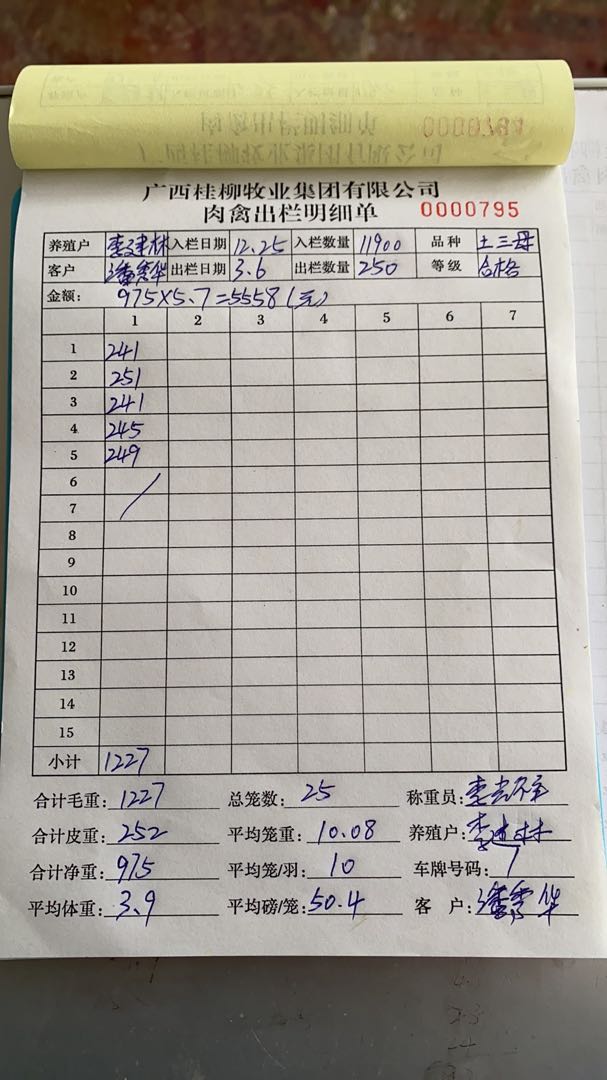 0000794
广西桂柳牧业集团有限公司
肉禽出栏明细单 0000795
养殖户 李建林 入栏日期 12.25 入栏数量 11900 品种 土三母
客户 潘秀华 出栏日期 3.6 出栏数量 250 等级 合格
金额: 975×5.7=5558(元)
1 2 3 4 5 6 7
1 241
2 251
3 241
4 245
5 249
6
7
8
9
10
11
12
13
14
15
小计 1227
合计毛重: 1227 总笼数: 25 称重员: 李
合计皮重: 252 平均笼重: 10.08 养殖户: 李建林
合计净重: 975 平均笼/羽: 10 车牌号码:
平均体重: 3.9 平均磅/笼: 50.4 客 户: 潘秀华